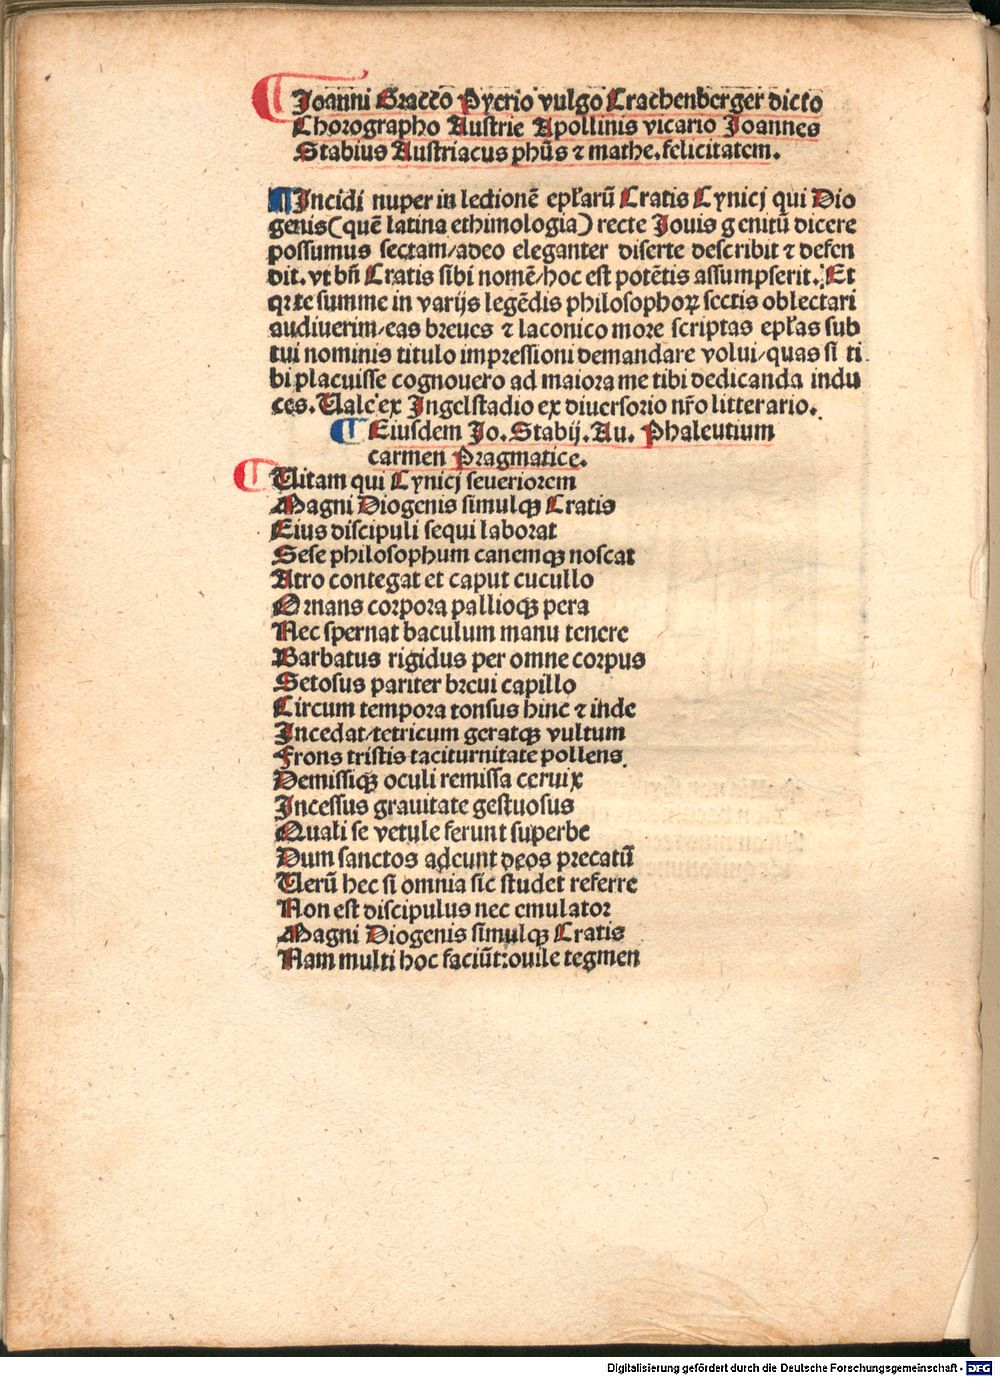 Joanni Graccō Pyerio vulgo Crachenberger dicto
Chorographo Austrie Apollinis vicario Joannes
Stabius Austriacus phūs ⁊ mathe. felicitatem.
¶ Incidi nuper in lectionē epłarū Cratis Cynicj qui Dio
genis (quē latina ethimologia) recte Jouis genitū dicere
possumus sectam/adeo eleganter diserte describit ⁊ defen
dit. vt bn̄ Cratis sibi nomē/hoc est potētis assumpserit. Et
qꝛ te summe in varijs legēdis philosophoꝝ sectis oblectari
audiuerim/eas breues ⁊ laconico more scriptas epłas sub
tui nominis titulo impressioni demandare volui/quas si ti
bi placuisse cognouero ad maiora me tibi dedicanda indu
ces. Uale ex Ingelstadio ex diuersorio nr̄o litterario.
¶ Eiusdem Jo. Stabij. Au. Phaleutium
carmen Pragmatice.
Uitam qui Cynicj seueriorem
Magni Diogenis simulqꝫ Cratis
Eius discipuli sequi laborat
Sese philosophum canemqꝫ noscat
Atro contegat et caput cucullo
Ornans corpora pallioqꝫ pera
Nec spernat baculum manu tenere
Barbatus rigidus per omne corpus
Setosus pariter breui capillo
Circum tempora tonsus hinc ⁊ inde
Incedat/tetricum geratqꝫ vultum
Frons tristis taciturnitate pollens
Demissiqꝫ oculi remissa ceruix
Incessus grauitate gestuosus
Quali se vetule ferunt superbe
Dum sanctos adeunt deos precatū
Uerū hec si omnia sic studet referre
Non est discipulus nec emulator
Magni Diogenis simulqꝫ Cratis
Nam multi hoc faciūt: ouile tegmen
Digitalisierung gefördert durch die Deutsche Forschungsgemeinschaft - DFG